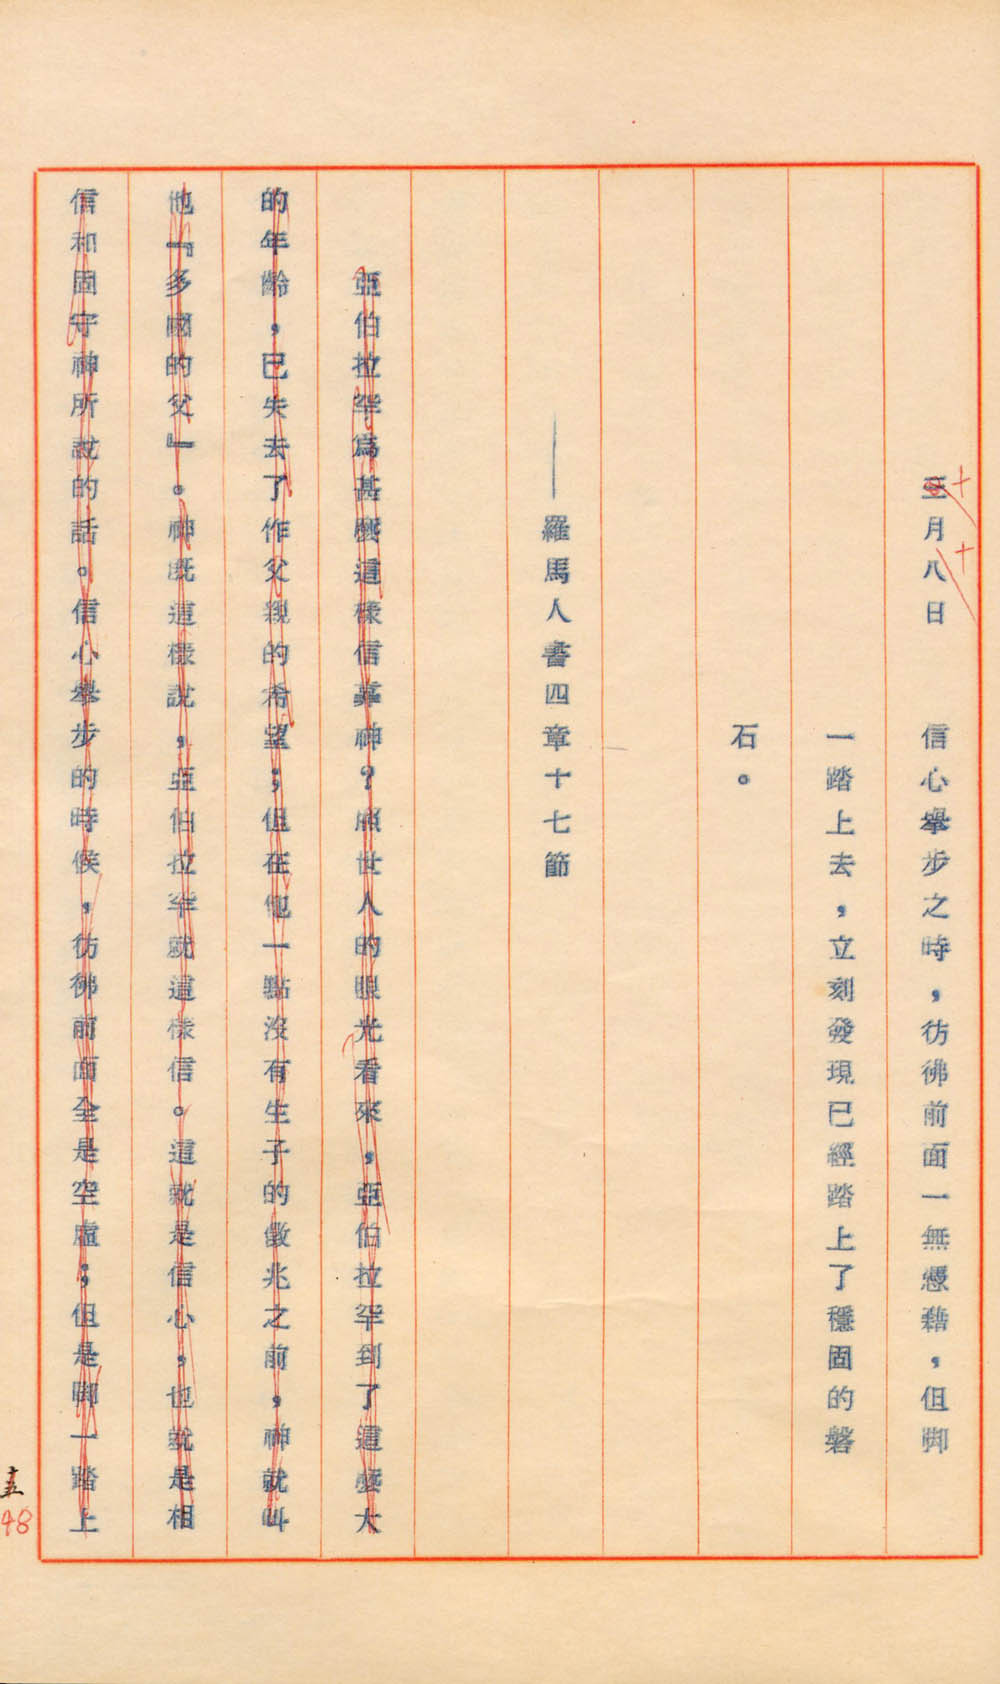 三月八日　信心舉步之時，彷彿前面一無憑藉，但脚
十
十
一踏上去，立刻發現已經踏上了穩固的磐
石。
——羅馬人書四章十七節
亞伯拉罕爲甚麼這樣信靠神？照世人的眼光看來，亞伯拉罕到了這麼大
的年齡，已失去了作父親的希望；但在他一點沒有生子的徵兆之前，神就叫
他『多國的父』。神既這樣說，亞伯拉罕就這樣信。這就是信心，也就是相
信和固守神所說的話。信心舉步的時候，彷彿前面全是空虛；但是脚一踏上
十五
48